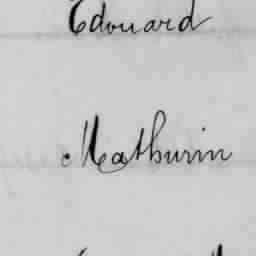 Edouard
Mathurin